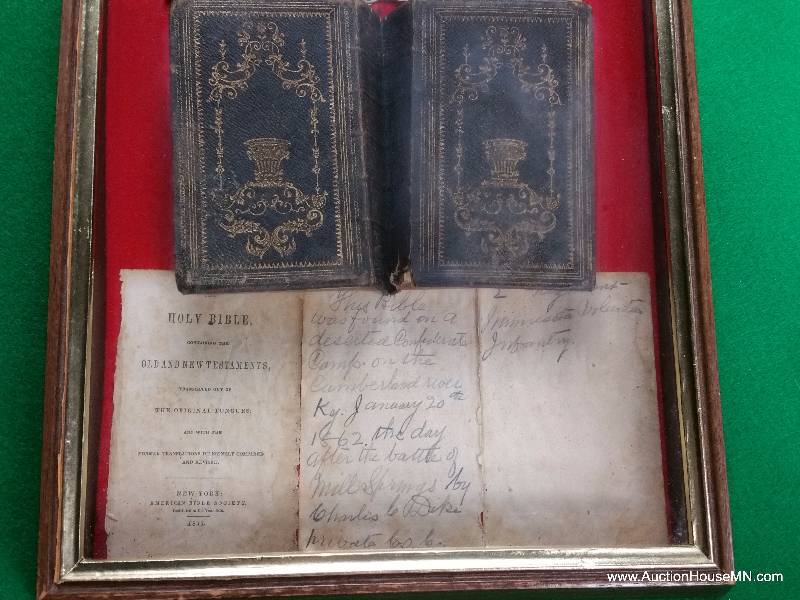 HOLY BIBLE,
CONTAINING THE
OLD AND NEW TESTAMENTS,
TRANSLATED OUT OF
THE ORIGINAL TONGUES;
AND WITH THE
FORMER TRANSLATIONS DILIGENTLY COMPARED
AND REVISED.
NEW YORK:
AMERICAN BIBLE SOCIETY,
This Bible
was found on a
deserted Confederate
Camp. on the
Cumberland river
Ky. January 20th
1862. the day
after the battle of
Mill Springs by
Charles C Dike
private Co C.
Minnesota Volunteer
Infantry.
www.AuctionHouseMN.com